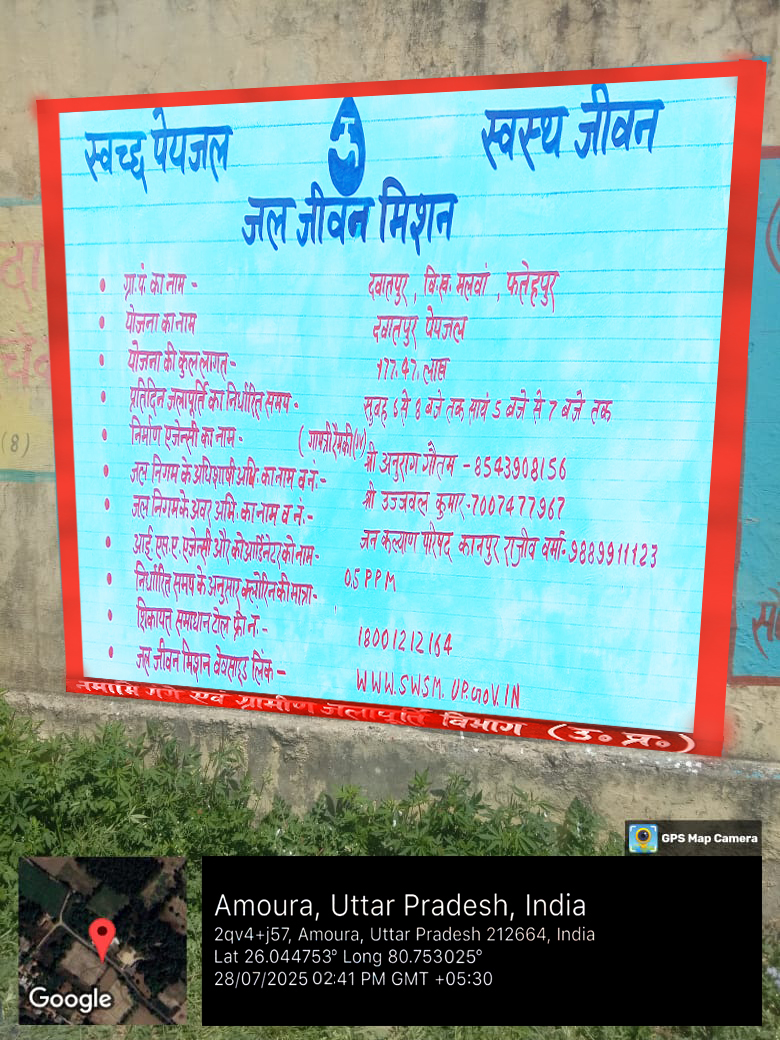 स्वच्छ पेयजल
स्वस्थ जीवन
जल जीवन मिशन
• ग्रा.पं. का नाम - दवातपुर, वि.ख. मलवां, फतेहपुर
• योजना का नाम दवातपुर पेयजल
• योजना की कुल लागत - 177.47 लाख
• प्रतिदिन जलापूर्ति का निर्धारित समय - सुबह 6 से 8 बजे तक सायं 5 बजे से 7 बजे तक
• निर्माण एजेन्सी का नाम -
• जल निगम के अधिशाषी अभि. का नाम व नं. - श्री अनुराग गौतम - 8543908156
• जल निगम के अवर अभि. का नाम व नं. - श्री उज्जवल कुमार - 7007477967
• आई. एस. ए. एजेन्सी और कोआर्डिनेटर का नाम - जन कल्याण परिषद कानपुर राजीव वर्मा - 9889911123
• निर्धारित समय के अनुसार क्लोरिन की मात्रा - 0.5 PPM
• शिकायत समाधान टोल फ्री नं. - 18001212164
• जल जीवन मिशन वेबसाइड लिंक - WWW.SWSM.UP.GOV.IN
नमामि गंगे एवं ग्रामीण जलापूर्ति विभाग (उ॰ प्र॰)
(8)
GPS Map Camera
Amoura, Uttar Pradesh, India
2qv4+j57, Amoura, Uttar Pradesh 212664, India
Lat 26.044753° Long 80.753025°
28/07/2025 02:41 PM GMT +05:30
Google